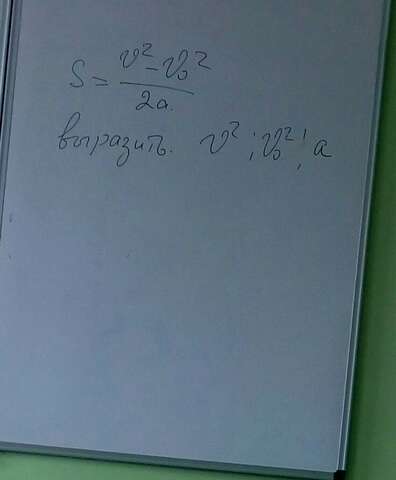 S = (v² - v₀²) / 2a.
выразить. v²; v₀²; a